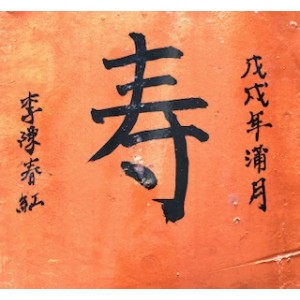 戊戌年蒲月
寿
李濠春紅